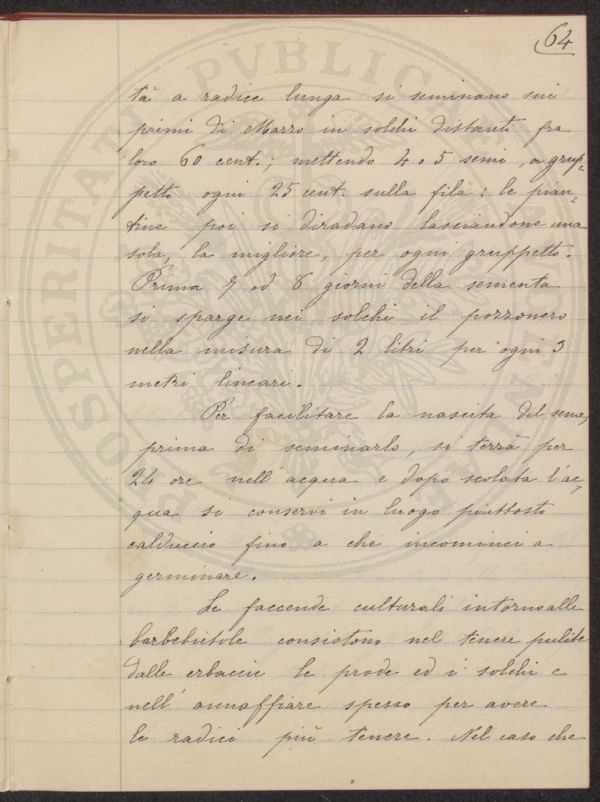 64
tà a radice lunga si seminano sui
primi di Marzo in solchi distanti fra
loro 60 cent.; mettendo 4 o 5 semi, a grup-
petto ogni 25 cent. sulla fila: le pian-
tine poi si diradano lasciandone una
sola, la migliore, per ogni gruppetto.
Prima 7 od 8 giorni della sementa
si sparge nei solchi il pozzonero
nella misura di 2 litri per ogni 3
metri lineari.
Per facilitare la nascita del seme,
prima di seminarlo, si terrà per
24 ore nell'acqua e dopo scolata l'ac-
qua si conservi in luogo piuttosto
calduccio fino a che incominci a
germinare.
Le faccende culturali intorno alle
barbebietole consistono nel tenere pulite
dalle erbacce le prode ed i solchi e
nell'annaffiare spesso per avere
le radici più tenere. Nel caso che
PROSPERITATI PVBLICAE